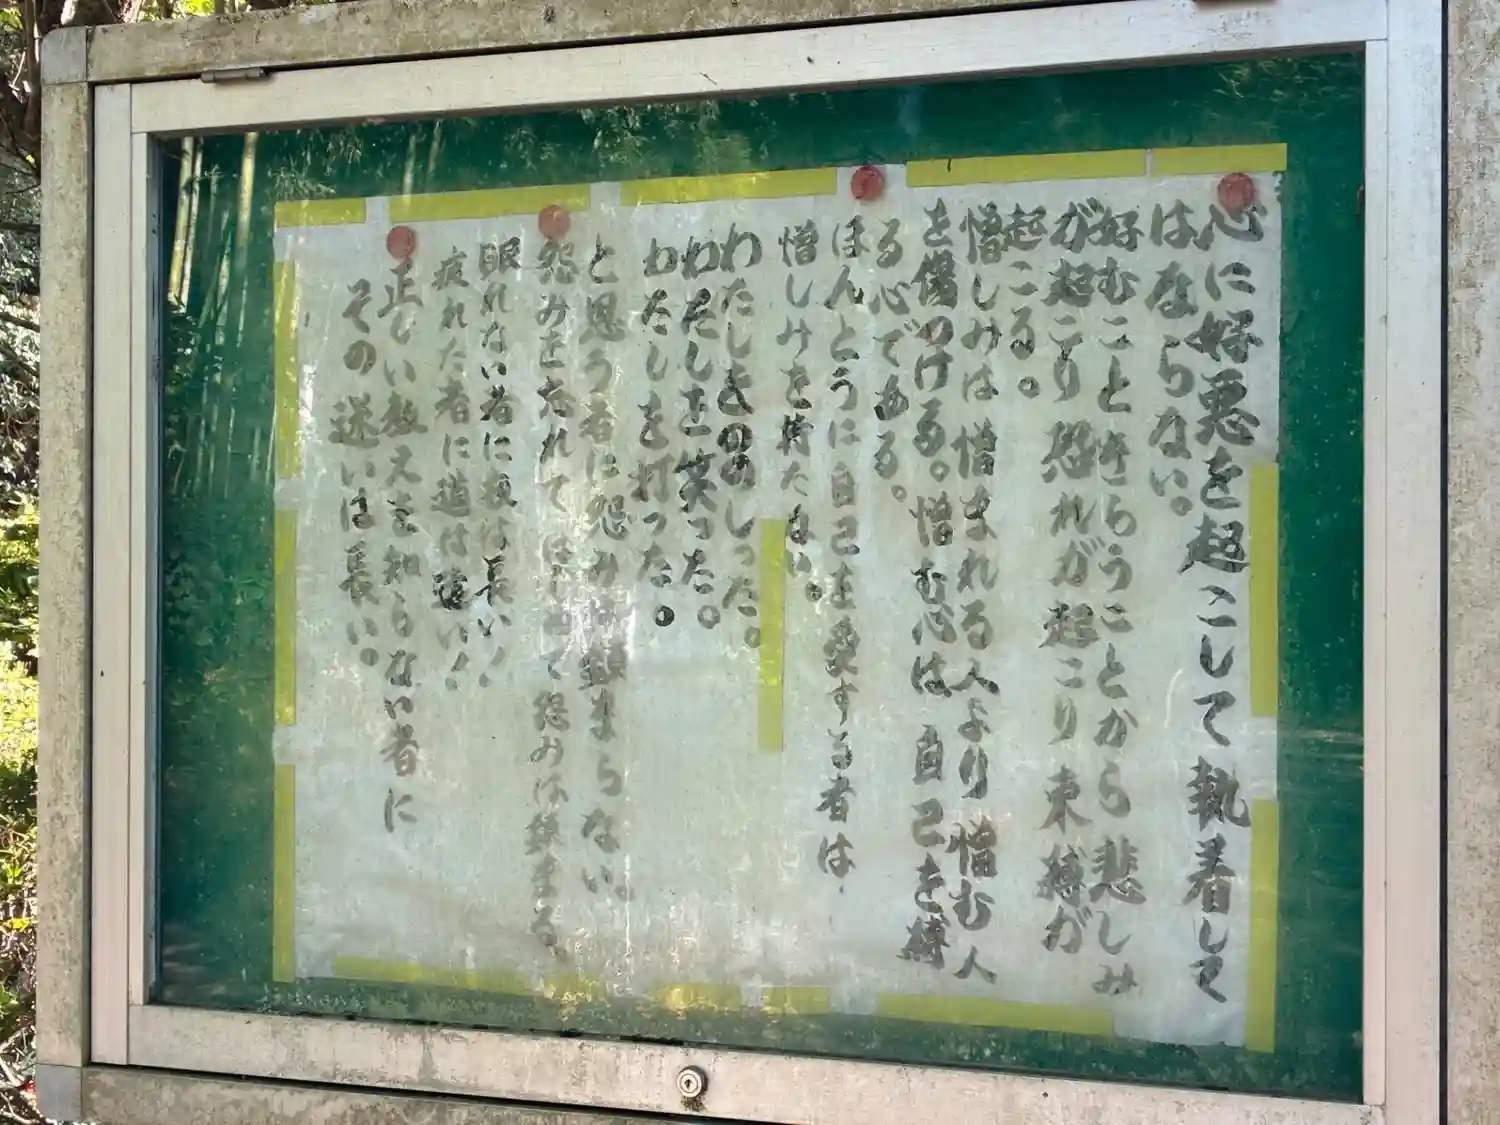 心に好悪を起こして執着して
はならない。
好むこときらうことから悲しみ
が起こり恐れが起こり束縛が
起こる。
憎しみは憎まれる人より憎む人
を傷つける。憎む心は自己を縛
る心である。
ほんとうに自己を愛する者は
憎しみを持たない。
わたしをののしった。
わたしを笑った。
わたしを打った。
と思う者に怨みは鎮まらない。
怨みを忘れてはじめて怨みは鎮まる。
眠れない者に夜は長い!
疲れた者に道は遠い!
正しい教えを知らない者に
その迷いは長い。